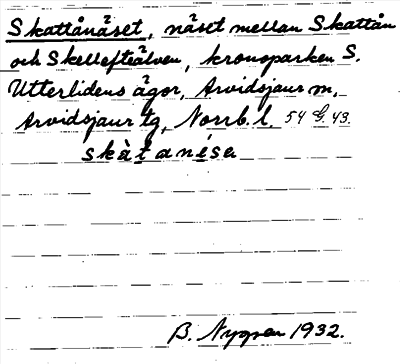 Skattånäset, näset mellan Skattån
och Skellefteälven, kronoparken S.
Utterlidens ägor, Arvidsjaur m,
Arvidsjaur tg, Norrb. l. 54 G. 43.
skàtanèse
B. Nygren 1932.